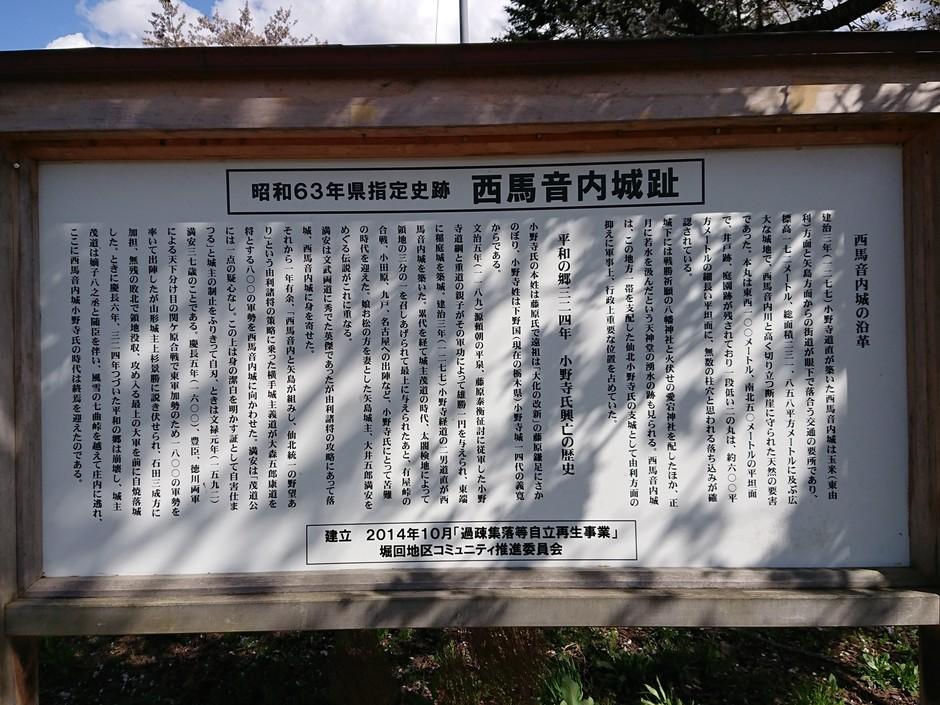 昭和63年県指定史跡 西馬音内城趾
西馬音内城の沿革
建治三年(一二七七)小野寺道直が築いた西馬音内城は玉米(東由
利)方面と矢島方面からの街道が眼下で落合う交通の要所であり、
標高一七二メートル、総面積二三一、八五八平方メートルに及ぶ広
大な城地で、西馬音内川と高く切り立つ断崖に守られた天然の要害
であった。本丸は東西一〇〇メートル、南北五〇メートルの平坦面
で、井戸跡、庭園跡が残されており一段低い二の丸は、約六〇〇平
方メートルの細長い平坦面に、無数の柱穴と思われる落ち込みが確
認されている。
城下には戦勝祈願の八幡神社と火伏せの愛宕神社を配したほか、正
月に若水を汲んだという天神堂の湧水の跡も見られる。西馬音内城
は、この地方一帯を支配した仙北小野寺氏の支城として由利方面の
抑えに軍事上、行政上重要な位置を占めていた。
平和の郷三二四年 小野寺氏興亡の歴史
小野寺氏の本姓は藤原氏で遠祖は「大化の改新」の藤原鎌足にさか
のぼり、小野寺姓は下野国(現在の栃木県)小野寺城一四代の義寛
からである。
文治五年(一一八九)源頼朝の平泉、藤原泰衡征討に従軍した小野
寺道綱と重道の親子がその軍功によって雄勝一円を与えられ、東端
に稲庭城を築城、建治三年(一二七七)小野寺経道の二男道直が西
馬音内城を築いた。累代を経て城主茂道の時代、太閤検地によって
領地の三分の一を召しあげられて最上に与えられたあと、有屋峠の
合戦、小田原、九戸、名古屋への出陣などなど、小野寺氏にとって苦難
の時代を迎えた。娘お松の方を妻とした矢島城主、大井五郎満安を
めぐる伝説がこれに重なる。
満安は文武両道に秀でた英傑であったが由利諸将の攻略にあって落
城、西馬音内城に身を寄せた。
それから一年有余、「西馬音内と矢島が組みし、仙北統一の野望あ
り」という由利諸将の策略に乗った横手城主義道が大森五郎康道を
将とする八〇〇の軍勢を西馬音内城に向かわせた。満安は「茂道公
には一点の疑心なし、この上は身の潔白を明かす証として自害仕ま
つる」と城主の制止をふりきって自刃、ときは文禄元年(一五九二)
満安三七歳でのことである。慶長五年(一六〇〇)、豊臣、徳川両軍
による天下分け目の関ヶ原合戦で東軍加勢のため一八〇〇の軍勢を
率いて出陣したが山形城主上杉景勝に説き伏せられ、石田三成方に
加担、無残の敗北で領地没収、攻め入る最上の大軍を前に自焼落城
した。ときに慶長六年、三二四年つづいた平和の郷は崩壊し、城主
茂道は嫡子八之丞と随臣を伴い、風雪の七曲峠を越えて庄内に逃れ、
ここに西馬音内城小野寺氏の時代は終焉を迎えたのである。
建立 2014年10月「過疎集落等自立再生事業」
堀回地区コミュニティ推進委員会